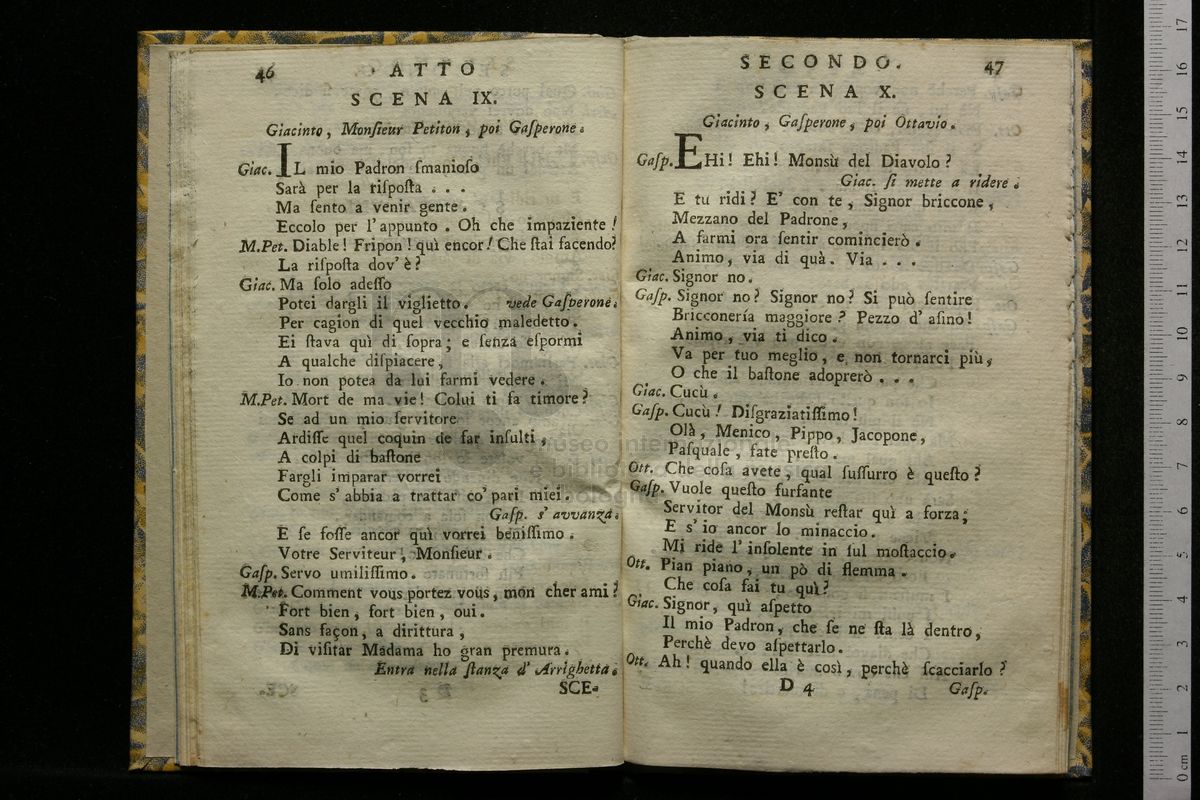 46 ATTO
SCENA IX.
Giacinto, Monſieur Petiton, poi Gaſperone.
Giac. IL mio Padron ſmanioſo
Sarà per la riſpoſta . . .
Ma ſento a venir gente.
Eccolo per l'appunto. Oh che impaziente!
M.Pet. Diable! Fripon! quì encor! Che ſtai facendo?
La riſpoſta dov'è?
Giac. Ma ſolo adeſſo
Potei dargli il viglietto. vede Gaſperone.
Per cagion di quel vecchio maledetto.
Ei ſtava quì di ſopra; e ſenza eſpormi
A qualche diſpiacere,
Io non potea da lui farmi vedere.
M.Pet. Mort de ma vie! Colui ti fa timore?
Se ad un mio ſervitore
Ardiſſe quel coquin de far inſulti,
A colpi di baſtone
Fargli imparar vorrei
Come s'abbia a trattar co' pari miei.
Gaſp. s'avvanza.
E ſe foſſe ancor quì vorrei beniſſimo.
Votre Serviteur, Monſieur.
Gaſp. Servo umiliſſimo.
M.Pet. Comment vous portez vous, mon cher ami?
Fort bien, fort bien, oui.
Sans façon, a dirittura,
Di viſitar Madama ho gran premura.
Entra nella ſtanza d'Arrighetta.
SCE-
SECONDO. 47
SCENA X.
Giacinto, Gaſperone, poi Ottavio.
Gaſp. EHi! Ehi! Monsù del Diavolo?
Giac. ſi mette a ridere.
E tu ridi? E' con te, Signor briccone,
Mezzano del Padrone,
A farmi ora ſentir comincierò.
Animo, via di quà. Via . . .
Giac. Signor no.
Gaſp. Signor no? Signor no? Si può ſentire
Bricconería maggiore? Pezzo d'aſino!
Animo, via ti dico.
Va per tuo meglio, e non tornarci più,
O che il baſtone adoprerò . . .
Giac. Cucù.
Gaſp. Cucù! Diſgraziatiſſimo!
Olà, Menico, Pippo, Jacopone,
Paſquale, fate preſto.
Ott. Che coſa avete, qual ſuſſurro è queſto?
Gaſp. Vuole queſto furfante
Servitor del Monsù reſtar quì a forza;
E s'io ancor lo minaccio.
Mi ride l'inſolente in ſul moſtaccio.
Ott. Pian piano, un pò di flemma.
Che coſa fai tu quì?
Giac. Signor, quì aſpetto
Il mio Padron, che ſe ne ſta là dentro,
Perchè devo aſpettarlo.
Ott. Ah! quando ella è così, perchè ſcacciarlo?
D 4 Gaſp.
museo internazionale
e biblioteca
0 cm 1 2 3 4 5 6 7 8 9 10 11 12 13 14 15 16 17